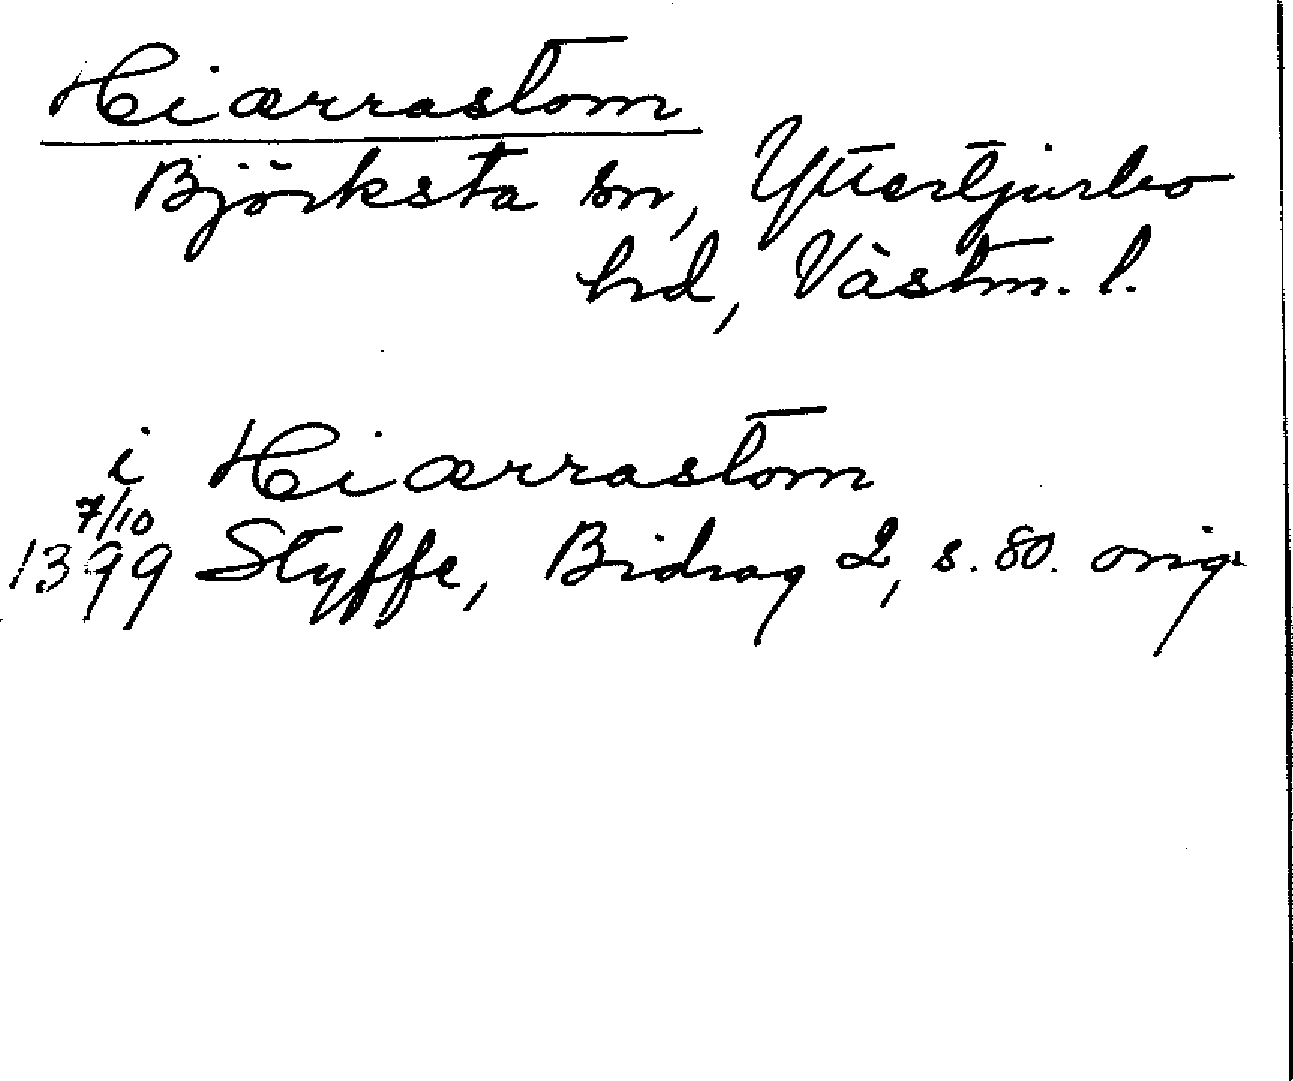 Hiærrastom
Björksta sn, Yttertjurbo
hd, Västm. l.
i Hiærrastom
7/10
1399 Styffe, Bidrag 2, s. 80. orig.